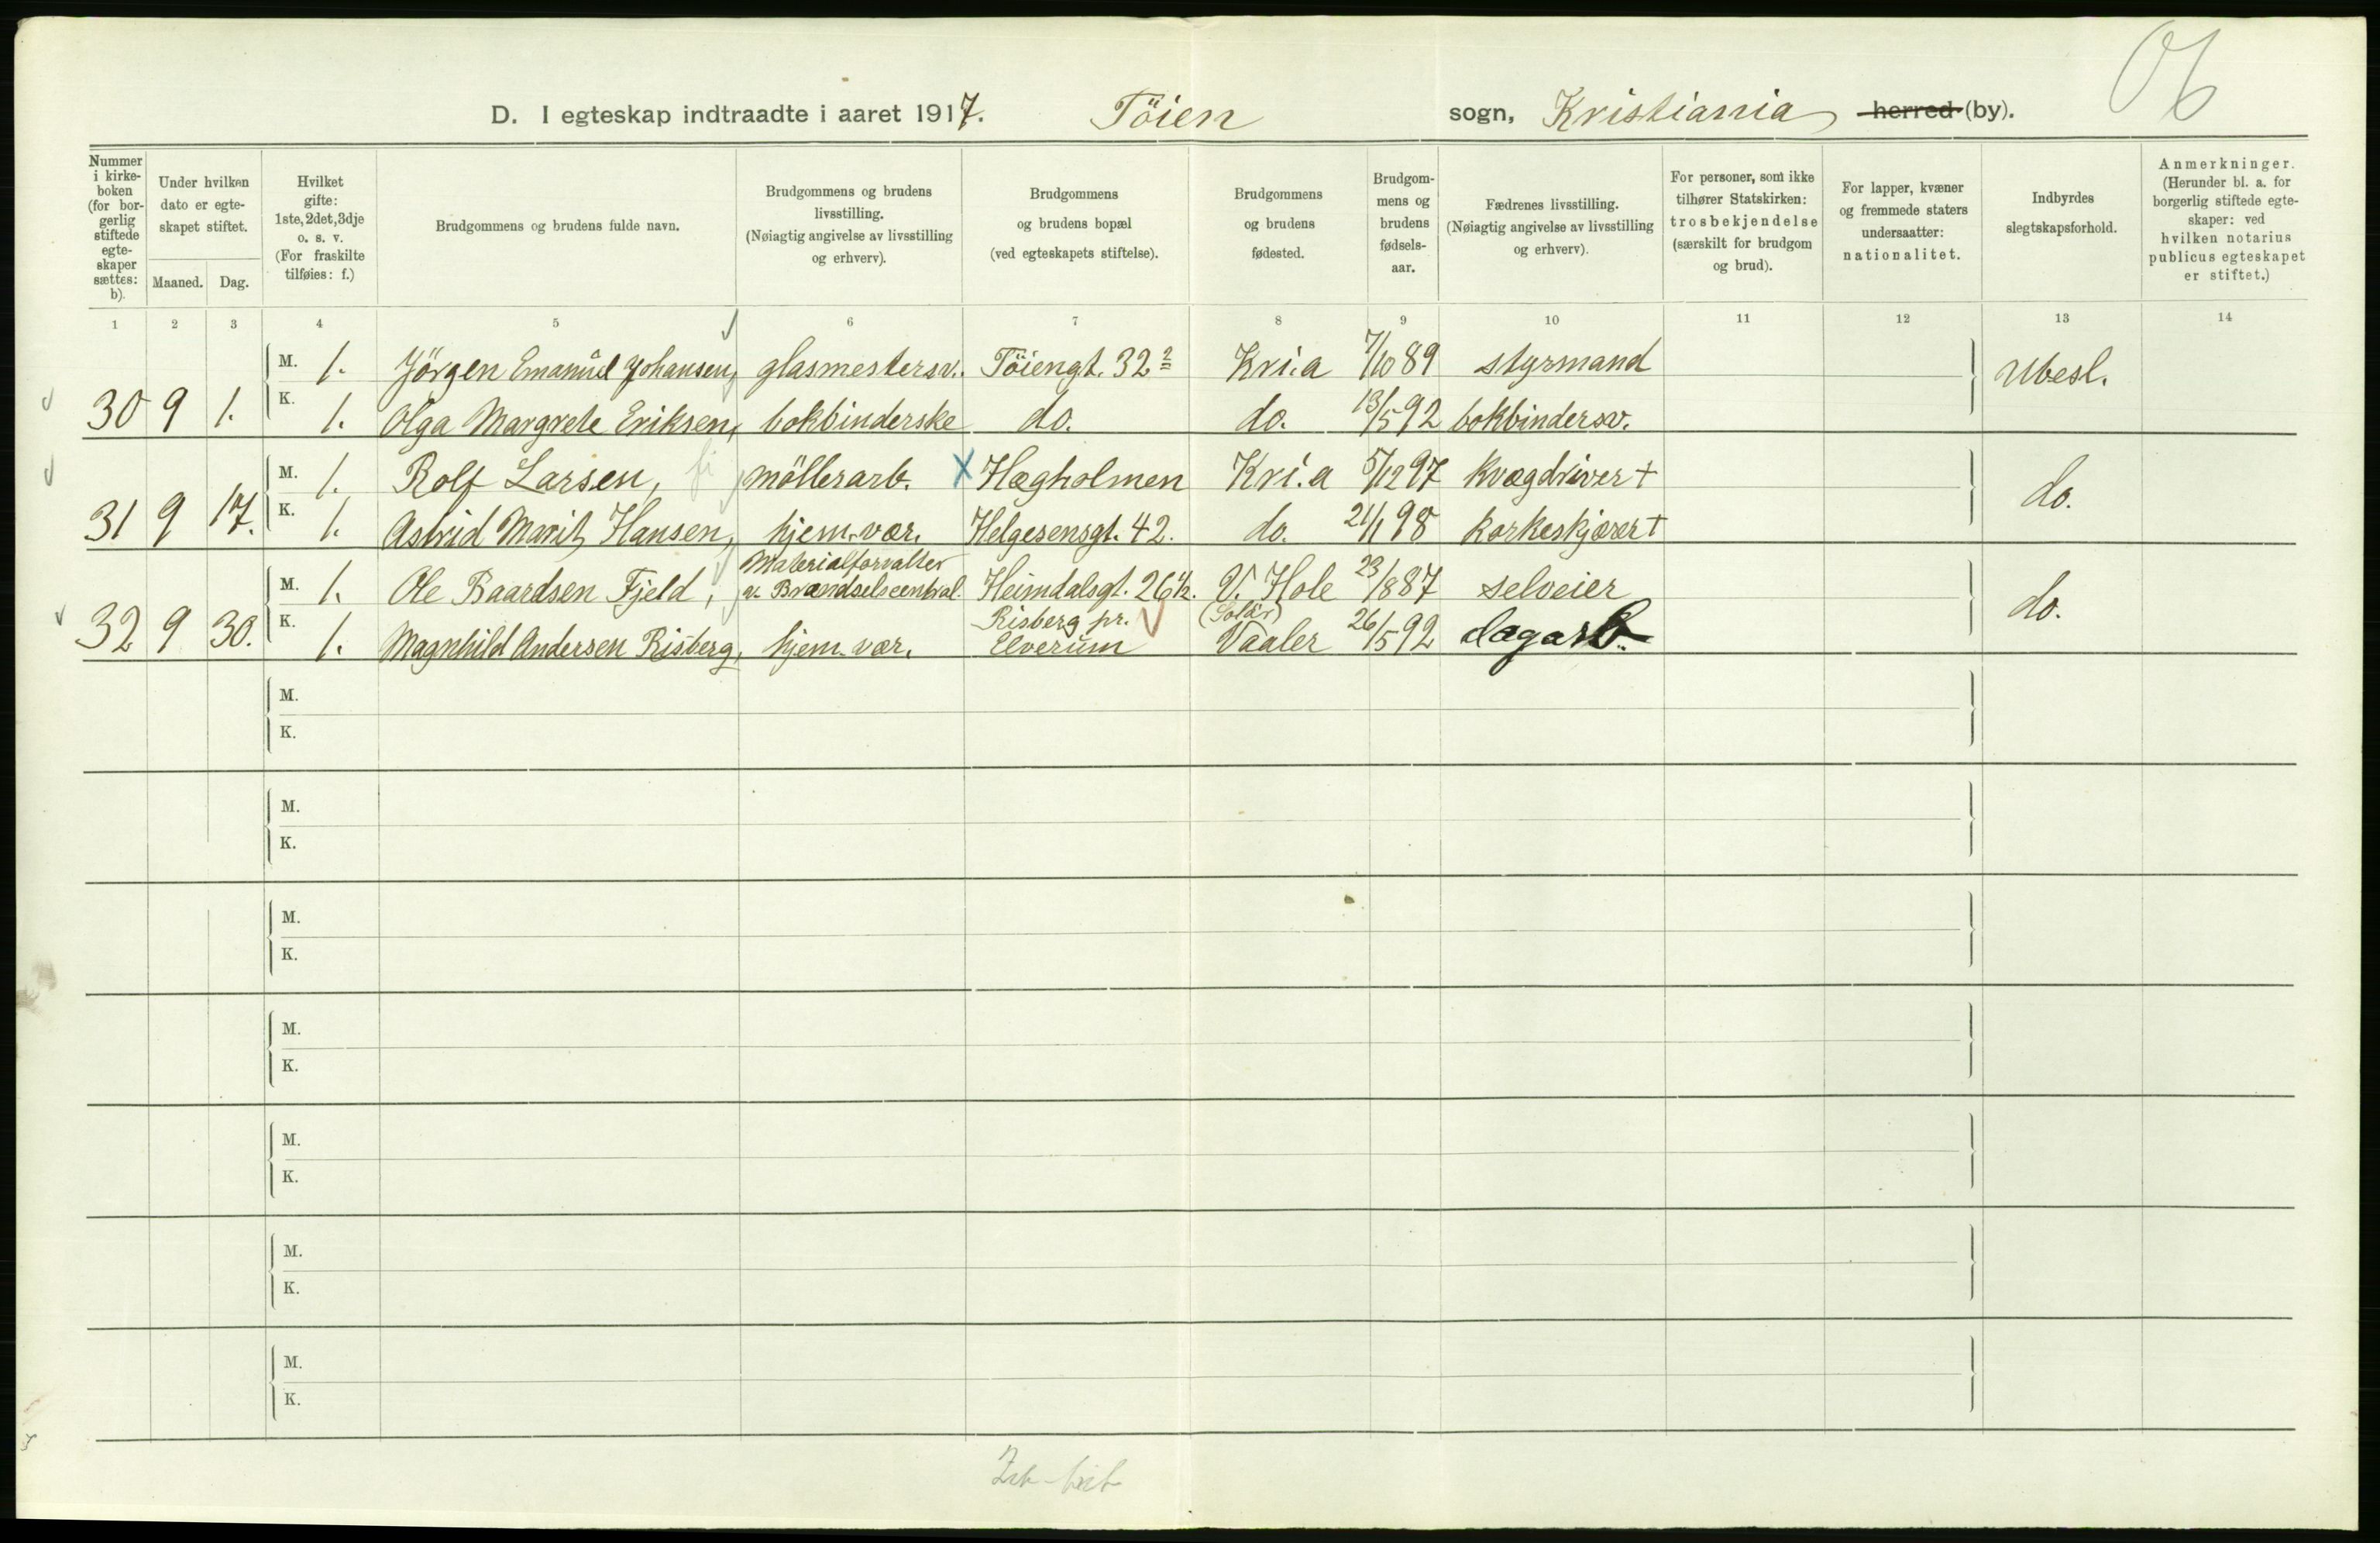 D. I egteskap indtraadte i aaret 1917. Töien sogn, Kristiania herred (by).
Nummer i kirkeboken (for borgerlig stiftede egteskaper sættes: b).
Under hvilken dato er egteskapet stiftet.
Maaned. Dag.
Hvilket gifte: 1ste, 2det, 3dje o. s. v. (For fraskilte tilføies: f.)
Brudgommens og brudens fulde navn.
Brudgommens og brudens livsstilling. (Nøiagtig angivelse av livsstilling og erhverv).
Brudgommens og brudens bopæl (ved egteskapets stiftelse).
Brudgommens og brudens fødested.
Brudgommens og brudens fødselsaar.
Fædrenes livsstilling. (Nøiagtig angivelse av livsstilling og erhverv).
For personer, som ikke tilhører Statskirken: trosbekjendelse (særskilt for brudgom og brud).
For lapper, kvæner og fremmede staters undersaatter: nationalitet.
Indbyrdes slegtskapsforhold.
Anmerkninger. (Herunder bl. a. for borgerlig stiftede egteskaper: ved hvilken notarius publicus egteskapet er stiftet.)
1 2 3 4 5 6 7 8 9 10 11 12 13 14
M. 1. Jörgen Emanuel Johansen, glasmestersv. Töiengt. 32 2 Kri.a 7/10 89 styrmand Ubesl.
30 9 1. K. 1. Olga Margrete Eriksen, bokbinderske do. do. 13/5 92 bokbindersv.
M. 1. Rolf Larsen, möllerarb. X Hægholmen Kri.a 5/12 97 Kvægdriver + do.
31 9 17. K. 1. Astrid Marit Hansen, hjem. vær. Helgesensgt. 42. do. 21/1 98 Korkeskjærer +
M. 1. Ole Baardsen Fjeld, Materialforvalter v. Brændselscentral. Heimdalsgt. 26 V. Hole 23/8 87 selveier do.
32 9 30. K. 1. Magnhild Andersen Risberg, hjem. vær. Risberg pr. Elverum (Solör) Vaaler 26/5 92 dagarb.
M.
K.
M.
K.
M.
K.
M.
K.
M.
K.
M.
K.
M.
K.